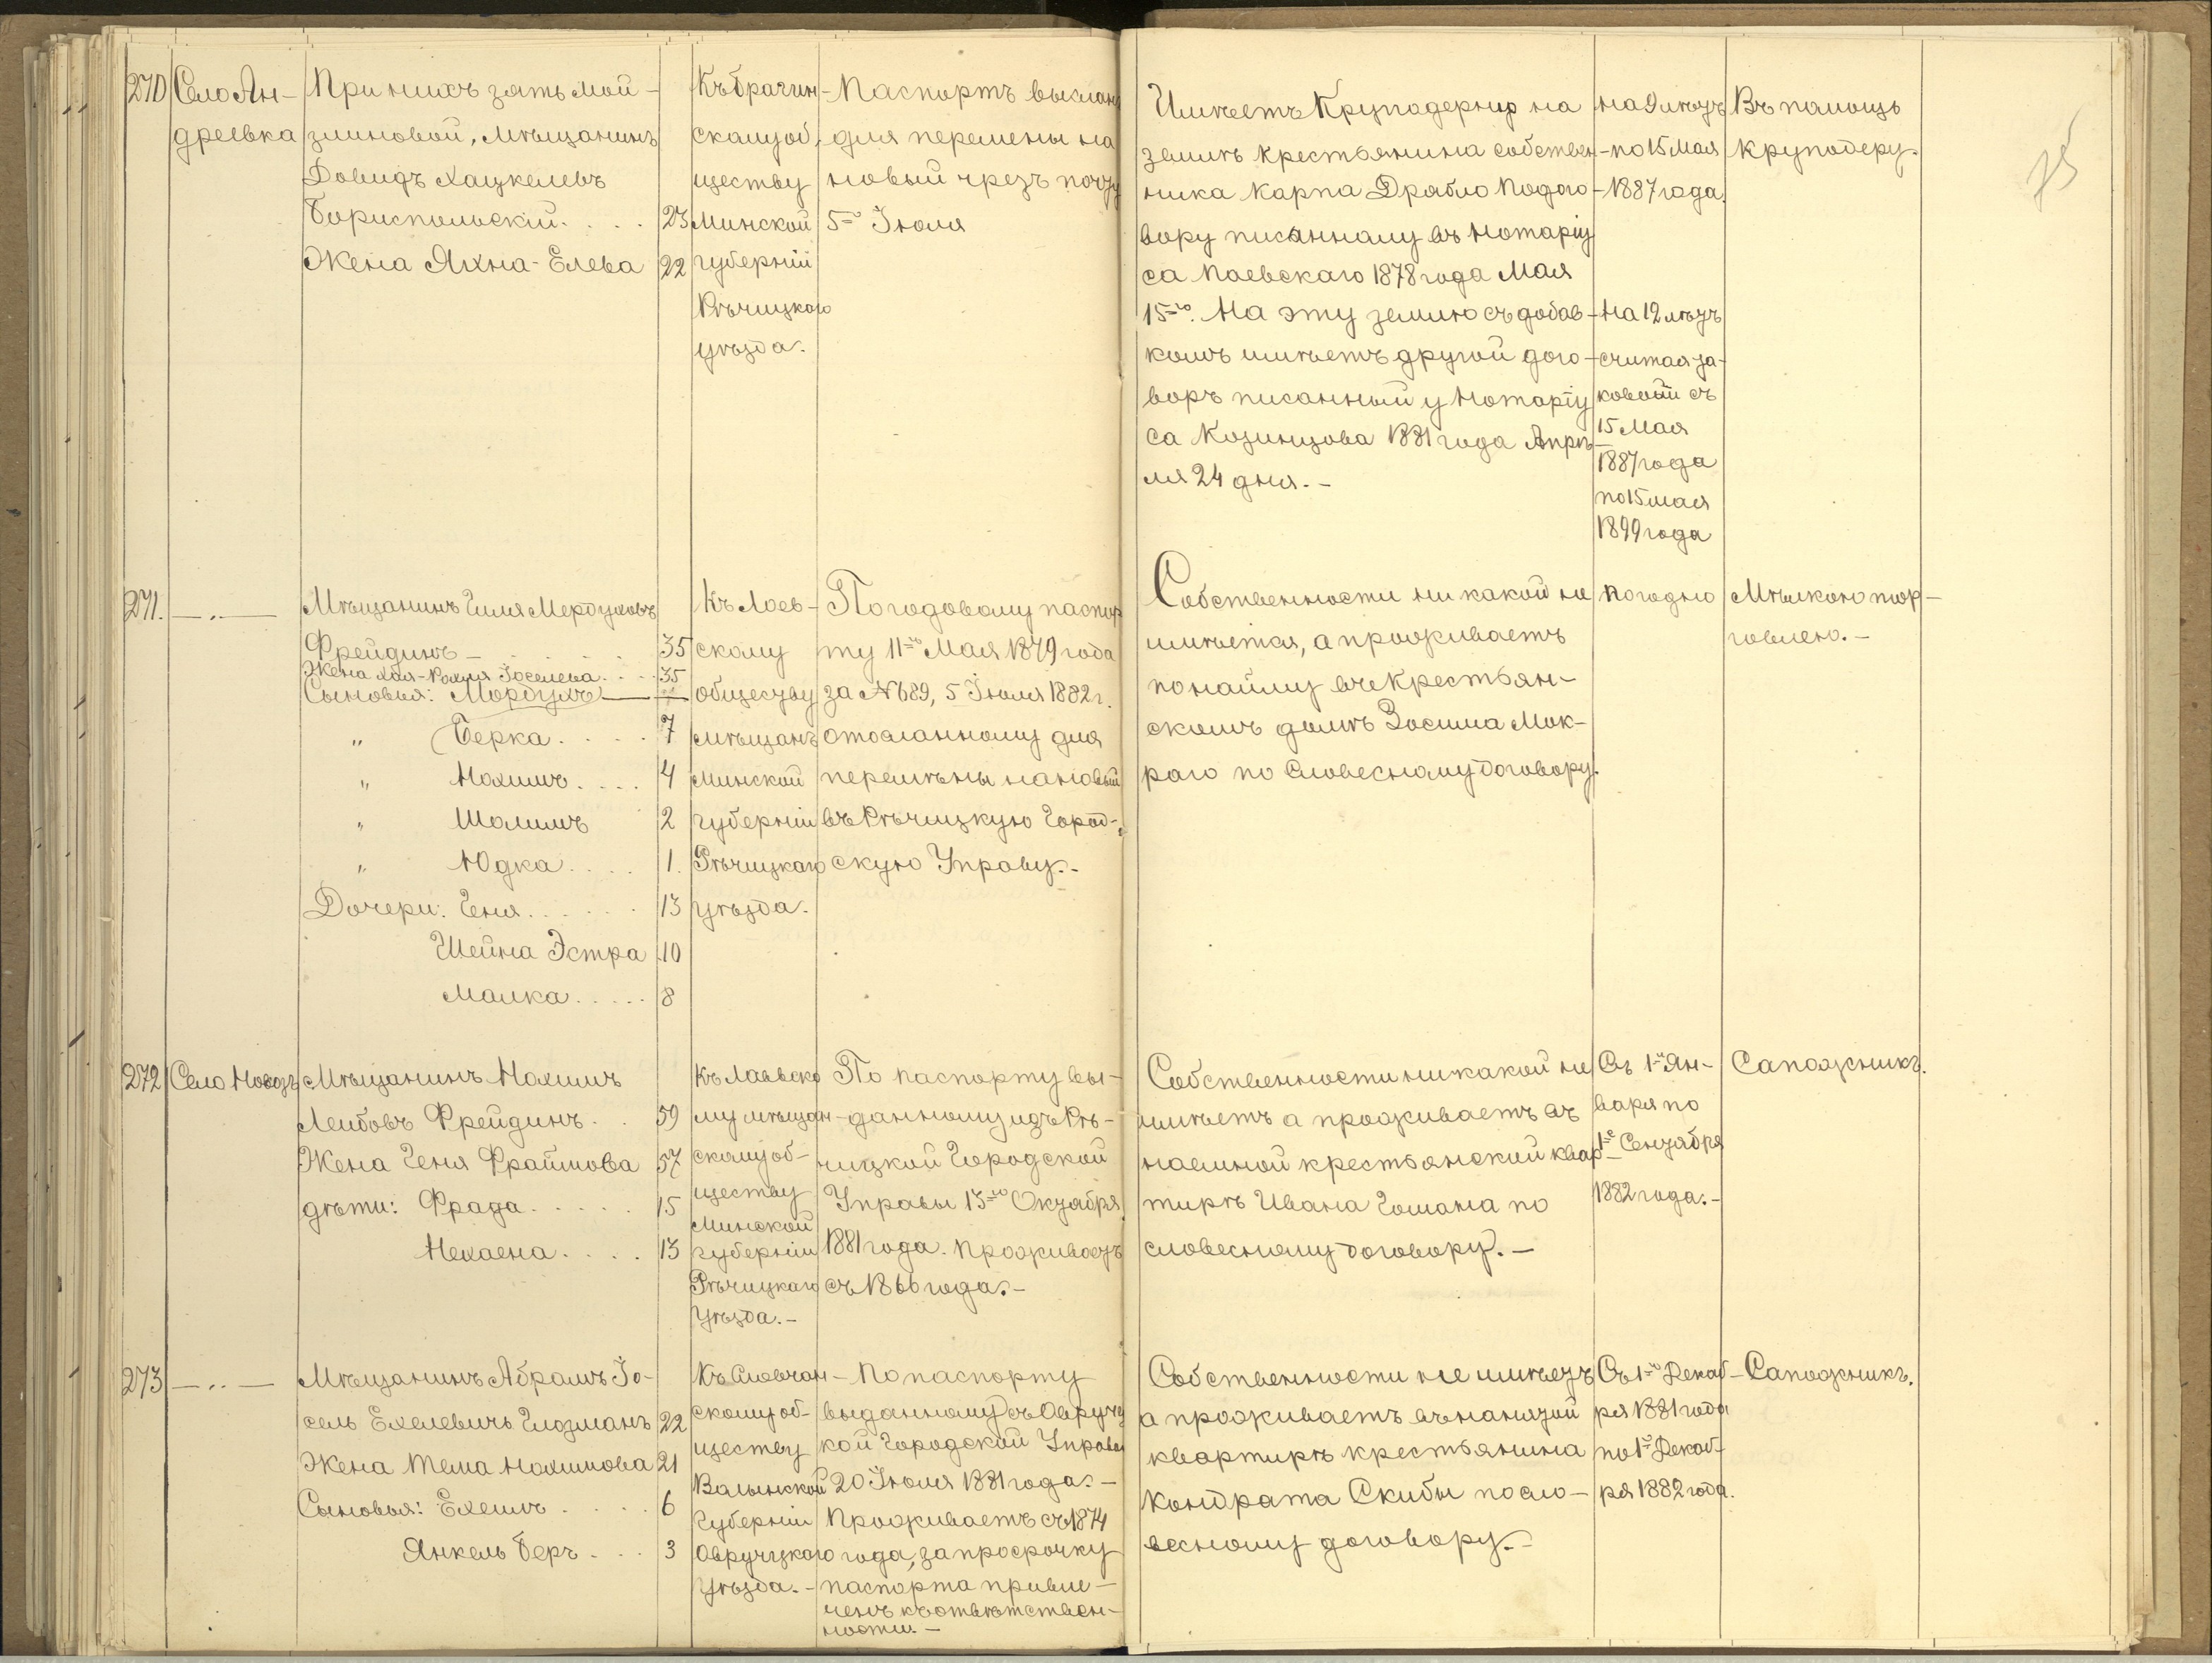 270
Село Ан-
дреевка
При нихъ зять мой-
зминовой, Мѣщанинъ
Довидъ Хацкелевъ
Бориспольскій. . . . 23
Жена Яхна-Елева 22
Къ Брагин-
скому об-
ществу
Минской
губерніи
Рѣчицкого
уѣзда.
Паспортъ высланъ
для перемены на
новый чрезъ почту
5го Іюля
Имѣетъ Круподерню на
землѣ крестьянина собствен-
ника Карпа Драбло подого-
вору писанному въ нотаріу
са Паевскаго 1878 года Мая
15го. На эту землю съ добав-
комъ имѣетъ другой дого-
воръ писанный у Нотаріу
са Козинцова 1881 года Апрѣ
ля 24 дня. -
на 9 лѣтъ
по 15 Мая
1887 года.
На 12 лѣтъ
считая за-
ковой съ
15 Мая
1887 года
по 15 мая
1899 года
Въ помощь
круподеру.
75
271.
— „ —
Мѣщанинъ Гиля Мердуховъ
Фрейдинъ - . . . . 35
Жена Хая-Рохля Іоселева . . . 35
Сыновья: Мордухъ — —
„ Берка. . . . . 7
„ Нохимъ. . . . 4
„ Шолимъ 2
„ Юдка. . . . 1.
Дочери: Геня. . . . . . 13
Шейна Эстра 10
Малка. . . . . 8
Къ Лоев-
скому
обществу
мѣщанъ
Минской
губерніи
Рѣчицкаго
уѣзда.
По годовому паспор
ту 11го Мая 1879 года
за № 689, 5 Іюля 1882 г.
отосланному для
перемѣны на новый
въ Рѣчицкую Город-
скую Управу. -
Собственности ни какой не
имѣется, а проживаетъ
по найму въ Крестьян-
скомъ домѣ Зосима Мок-
раго по словесному договору.
погодно
Мѣлкою тор-
говлею. -
272
Село Новозъ
Мѣщанинъ Нохимъ
Лейбовъ Фрейдинъ. . 59
Жена Геня Фраимова 57
дѣти: Фрада. . . . . 15
Нехаена. . . . 13
Къ Лаевско
му мѣщан-
скому об-
ществу
Минской
губерніи
Рѣчицкаго
Уѣзда. -
По паспорту вы-
данному изъ Рѣ-
чицкой Городской
Управы 13го Октября
1881 года. Проживаетъ
съ 1866 года. -
Собственности никакой не
имѣетъ а проживаетъ въ
наемной крестьянской квар
тирѣ Ивана Гомана по
словесному договору. -
Съ 1го Ян-
варя по
1е Сентября
1882 года. -
Сапожникъ.
273
— „ —
Мѣщанинъ Абрамъ Іо-
сель Ехелевичъ Глозманъ 22
Жена Тема Нохимова 21
Сыновья: Ехелъ . . . . 6
Янкель Беръ . . . 3
Къ Словчан-
скому об-
ществу
Валынской
Губерніи
Овручцкаго
Уѣзда. -
По паспорту
выданному съ Овруч
кой Городской Управы
20 Іюля 1881 года. -
Проживаетъ съ 1874
года, за просрочку
паспорта привле-
ченъ къ отвѣтствен-
ности. -
Собственности не имѣетъ
а проживаетъ въ нанятой
квартирѣ крестьянина
Кондрата Скибы по сло-
весному договору. -
Съ 1го Декаб-
ря 1881 года
по 1е Декаб-
ря 1882 года.
Сапожникъ.